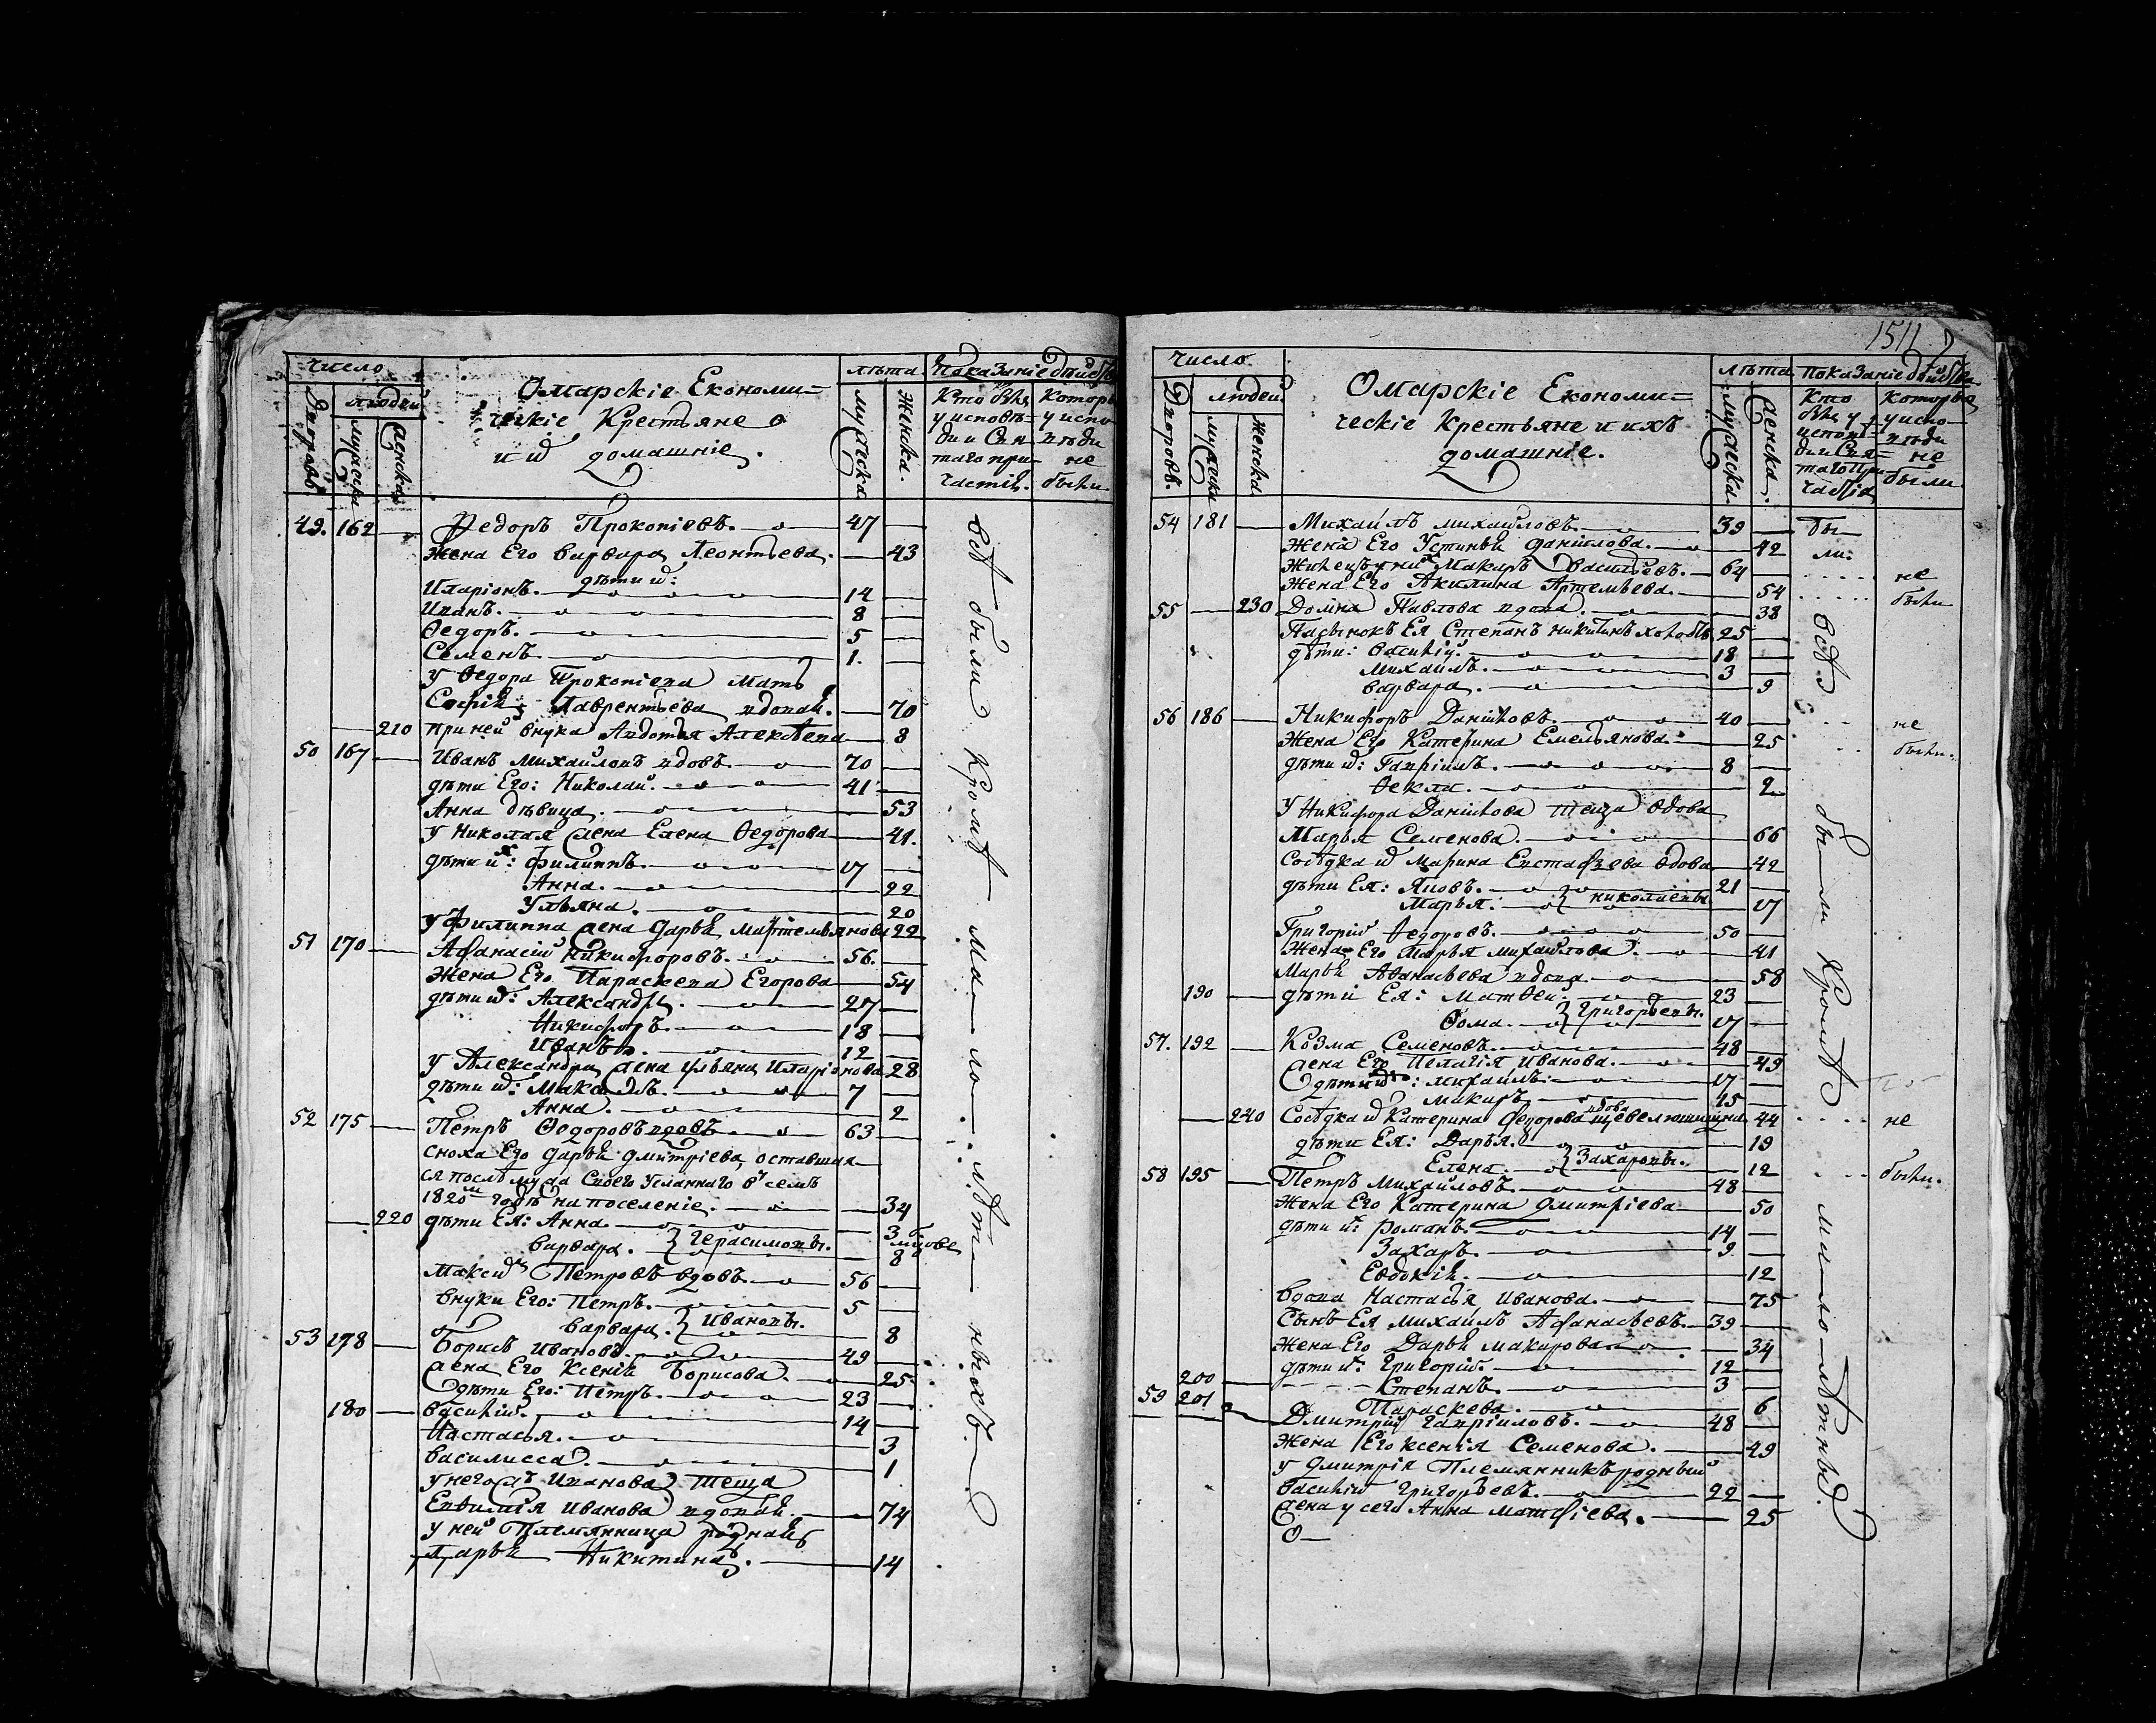 число
Омарскіе Економи=
ческіе Крестьяне
и их домашніе.
лѣта
Показаніе
Дворовъ
людей
мужеска
женска
мужеска
женска.
Кто былъ
у исповѣ=
ди и Свя
таго при-
частія.
Которы
у испо
вѣди
не
были
49. 162 — Ѳедоръ Прокопіевъ. 47 —
Жена Его Варвара Леонтьева. — 43
дѣти их:
Иларіонъ. 14 —
Иванъ. 8 —
Ѳедоръ. 5 —
Семенъ. 1. —
у Ѳедора Прокопіева Мать
Софія Лаврентьева вдовая. — 70
— 210 при ней внука Авдотья Алексѣева — 8
50 167 — Иванъ Михайловъ вдовъ. 70 —
дѣти Его: Николай. 41 —
Анна дѣвица. — 53
у Николая жена Елена Ѳедорова — 41.
дѣти их: Филиппъ. 17 —
Анна. — 22
Ульяна. — 20
у Филиппа жена Дарья Мартемьянова 22
51 170 — Аѳанасій Никифоровъ. 56. —
Жена Его Параскева Егорова — 54
дѣти их: Александръ. 27 —
Никифоръ. 18 —
Иванъ. 12 —
у Александра жена Ульяна Иларіонова 28
дѣти их: Максимъ. 7 —
Анна. — 2
52 175 — Петръ Ѳедоровъ вдовъ. 63 —
сноха Его Дарья Дмитріева, оставшая
ся послѣ мужа Своего Усланнаго въ семъ
1820м годѣ на поселеніе. — 34
— 220 дѣти Ея: Анна. — 3
Варвара. } Герасимовы. — 8
Максимъ Петровъ вдовъ. 56 —
внуки Его: Петръ. 5 —
Варвара. } Ивановы. — 8
53 178 — Борисъ Ивановъ. 49 —
жена Его Ксенія Борисова. — 25
дѣти Его: Петръ. 23 —
180 — Василій. 14 —
Настасья. — 3
Василисса. — 1
у него жъ Иванова теща
Евѳимія Иванова вдовая. — 74
у ней Племянница родная
Дарья Никитина. — 14
всѣ были кромѣ ма-ло-лѣт-ныхъ
1511
число
Омарскіе Економи=
ческіе Крестьяне и ихъ
домашніе.
лѣта
Показаніе
Дворовъ.
людей
мужеска
женска
мужеска.
женска.
Кто
былъ у
исповѣ-
ди и Свя=
таго При
частія
Которые
у испо—
вѣди
не
были
54 181 — Михайлъ Михайловъ. 39 — бы—
Жена Его Устинья Данилова. — 42 ли.
Макаръ Васильевъ. 64 — не
Жена Его Акилина Артемьева. — 54 были
55 — 230 Домна Павлова вдова. — 38
Пасынокъ Ея Степанъ Никитинъ холостъ 25 —
дѣти: Василій. 18 —
Михайлъ. 3 —
Варвара. — 9
56 186 — Никифоръ Даниловъ. 40 — не
Жена Его Катерина Емельянова. — 25 были.
дѣти их: Гавріилъ. 8 —
Ѳекла. — 2
У Никифора Данилова теща вдова
Марья Семенова. — 66
Сосѣдка их Марина Евстафьева вдова — 42
дѣти Ея: Яковъ. 21 —
Марья. } Николаевы. — 17
Григорій Ѳедоровъ. 50 —
Жена Его Марья Михайлова. — 41
Марья Аѳанасьева вдова. — 58
190 — дѣти Ея: Матвей. 23 —
Ѳома. } Григорьевы. 17 —
57. 192 — Козма Семеновъ. 48 —
жена Его Пелагія Иванова. — 49
дѣти их: Михайлъ. 17 —
Макаръ. 15 —
— 240 Сосѣдка их Катерина Федорова вдова 44 не
дѣти Ея: Дарья. — 19
Елена. } Захаровы. — 12
58 195 — Петръ Михайловъ. 48 — были.
Жена Его Катерина Дмитріева — 50
дѣти их: Романъ. 14 —
Захаръ. 9 —
Евдокія. — 12
вдова Настасья Иванова. — 75
Сынъ Ея Михайлъ Аѳанасьевъ. 39 —
Жена Его Дарья Макарова — 34
дѣти их: Григорій. 12 —
200 — Степанъ. 3 —
Параскева. — 6
59 201 Дмитрій Гавріиловъ. 48 —
Жена Его Ксенія Семенова. — 49
у Дмитрія Племянникъ родный
Василій Григорьевъ. 22 —
жена у сего Анна Матфіева. — 25
всѣ были кромѣ ма-ло-лѣтных.